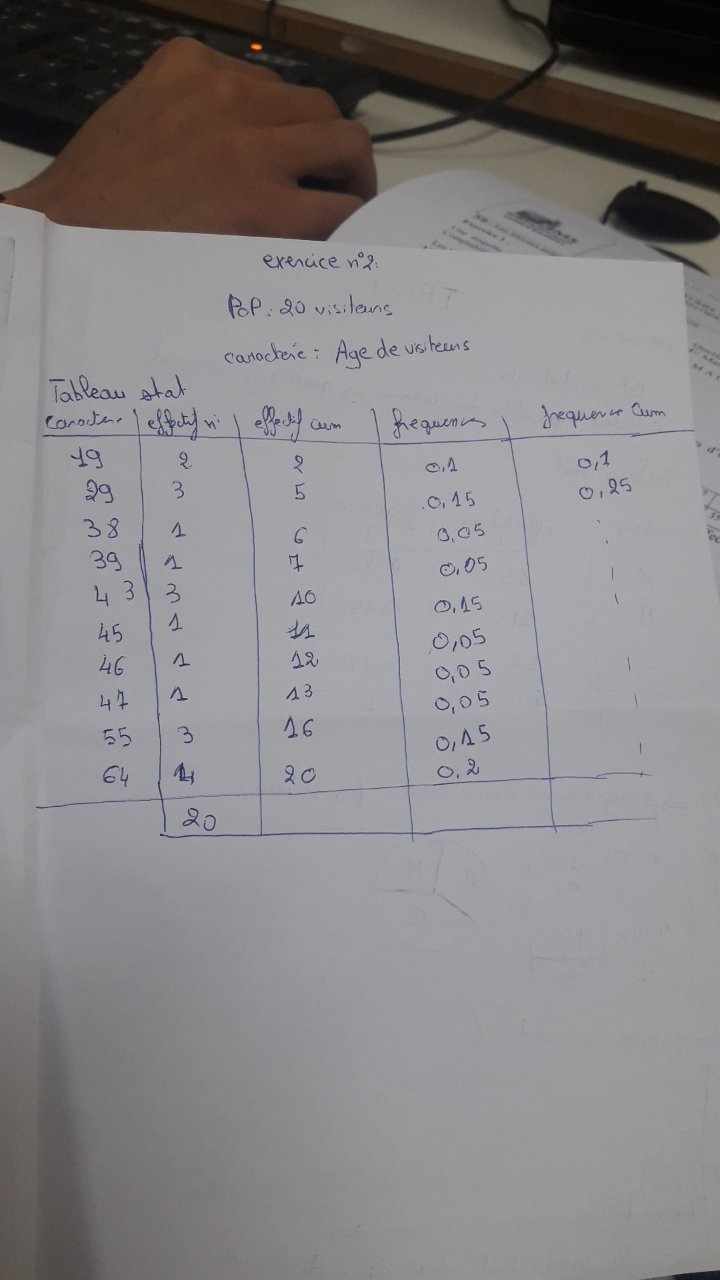 exercice n°2:
PoP: 20 visiteurs
caractere: Age de visiteurs
Tableau stat
caractere effectif ni effectif cum frequences frequence Cum
19 2 2 0,1 0,1
29 3 5 0,15 0,25
38 1 6 0,05
39 1 7 0,05
43 3 10 0,15
45 1 11 0,05
46 1 12 0,05
47 1 13 0,05
55 3 16 0,15
64 4 20 0.2
20